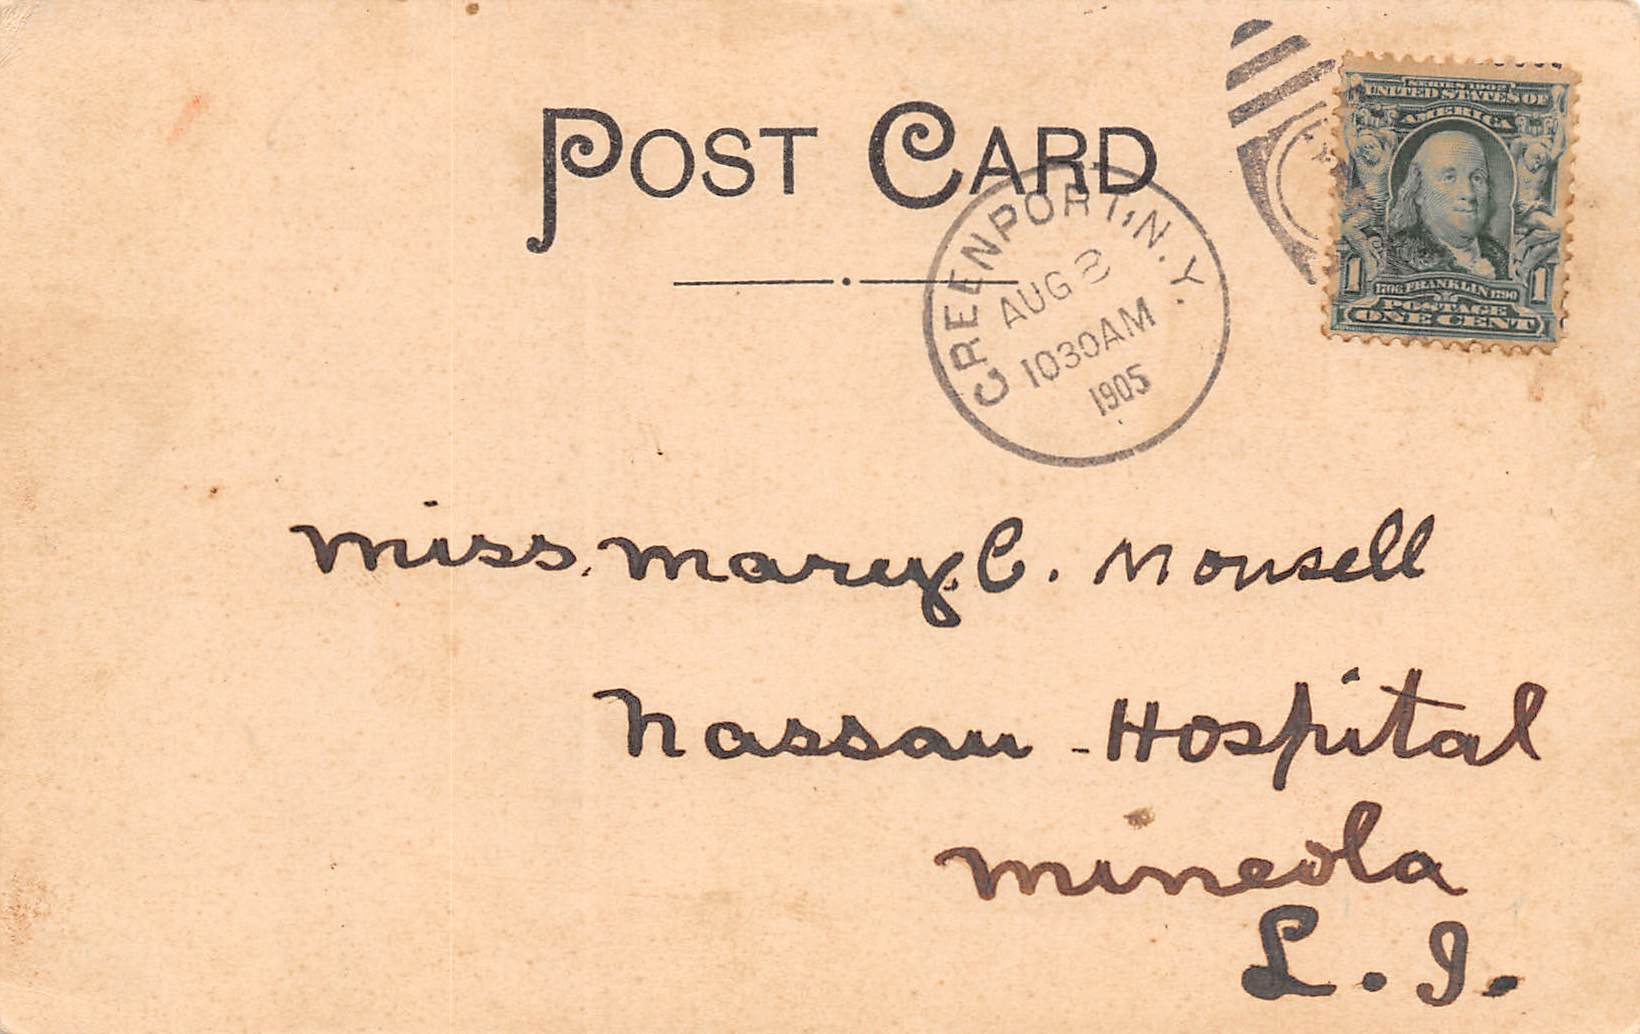 POST CARD
GREENPORT, N.Y.
AUG 8
1030AM
1905
SERIES 1902
UNITED STATES OF
AMERICA
1 1706 FRANKLIN 1790 1
POSTAGE
ONE CENT
Miss Mary C. Monsell
Nassau Hospital
Mineola
L. I.